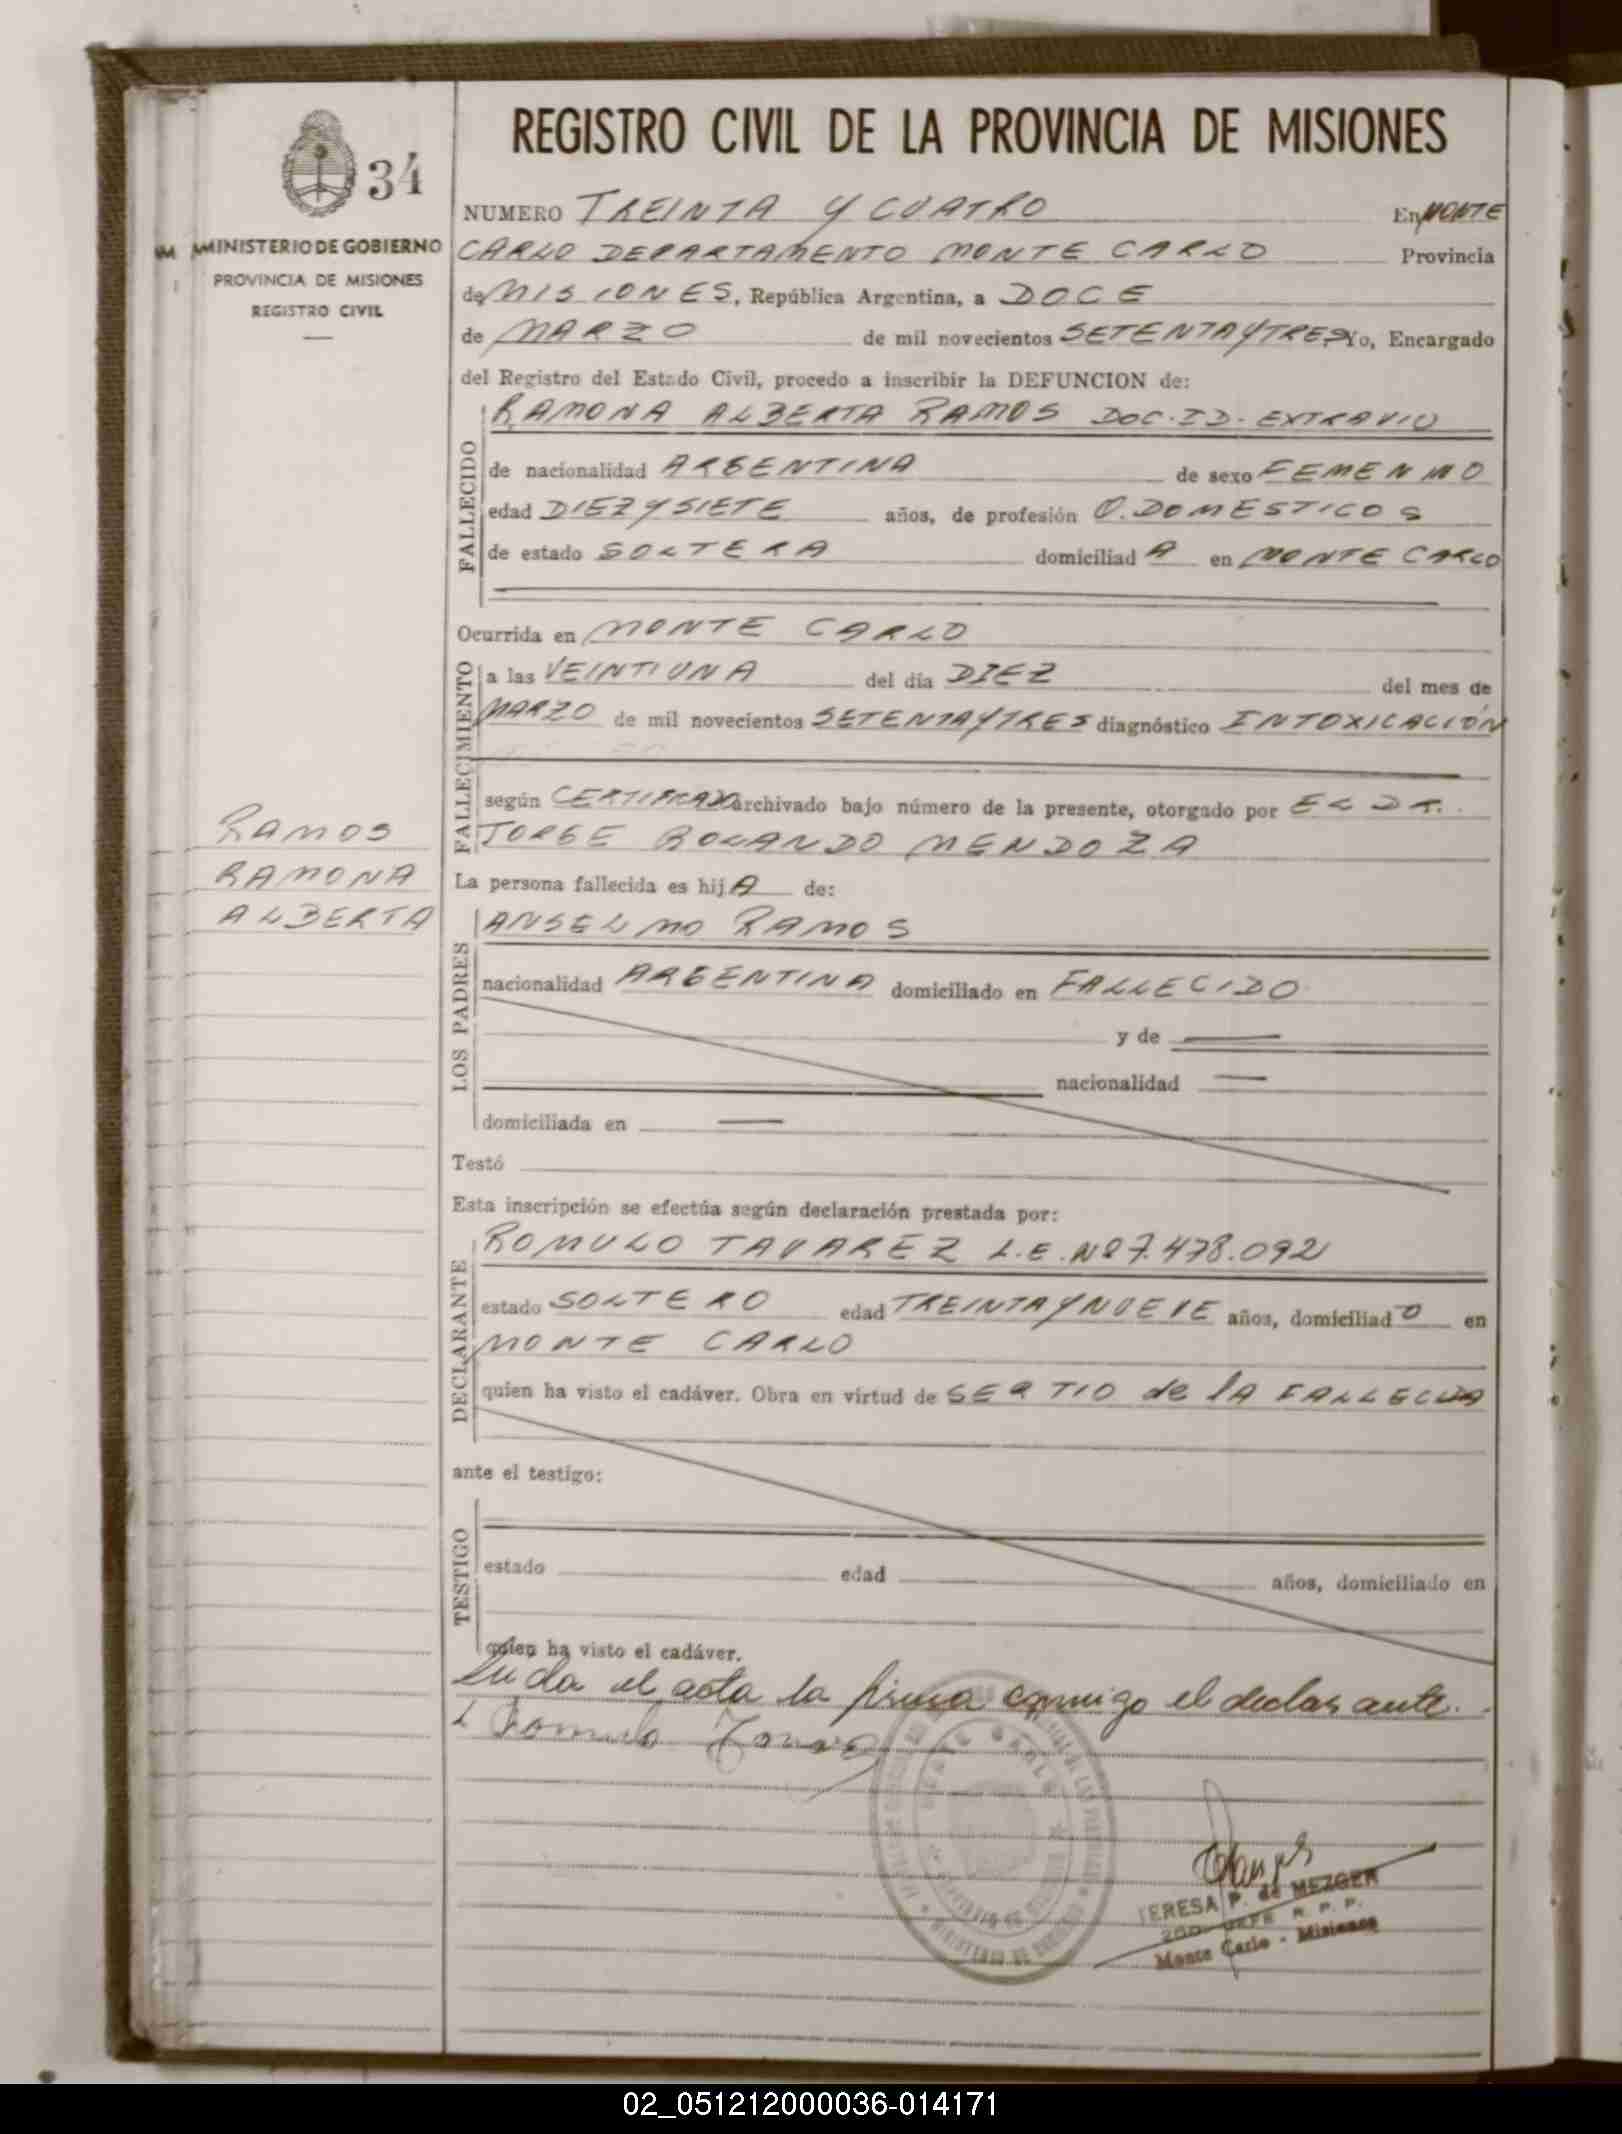 REGISTRO CIVIL DE LA PROVINCIA DE MISIONES
34
MINISTERIO DE GOBIERNO
PROVINCIA DE MISIONES
REGISTRO CIVIL
NUMERO TREINTA Y CUATRO En MONTE
CARLO DEPARTAMENTO MONTE CARLO Provincia
de MISIONES, República Argentina, a DOCE
de MARZO de mil novecientos SETENTAYTRES Yo, Encargado
del Registro del Estado Civil, procedo a inscribir la DEFUNCION de:
FALLECIDO
RAMONA ALBERTA RAMOS DOC. ID. EXTRAVIO
de nacionalidad ARGENTINA de sexo FEMENINO
edad DIEZYSIETE años, de profesión Q. DOMESTICOS
de estado SOLTERA domiciliad A en MONTE CARLO
Ocurrida en MONTE CARLO
FALLECIMIENTO
a las VEINTIUNA del día DIEZ del mes de
MARZO de mil novecientos SETENTAYTRES diagnóstico INTOXICACIÓN
según CERTIFICADO archivado bajo número de la presente, otorgado por EL DR.
JORGE ROLANDO MENDOZA
RAMOS
RAMONA
ALBERTA
La persona fallecida es hij A de:
LOS PADRES
ANSELMO RAMOS
nacionalidad ARGENTINA domiciliado en FALLECIDO
y de
nacionalidad
domiciliada en
Testó
Esta inscripción se efectúa según declaración prestada por:
DECLARANTE
ROMULO TAVAREZ L.E. Nº 7.478.092
estado SOLTERO edad TREINTAYNUEVE años, domiciliad O en
MONTE CARLO
quien ha visto el cadáver. Obra en virtud de SER TIO de lA FALLECIDA
ante el testigo:
TESTIGO
estado edad años, domiciliado en
quien ha visto el cadáver.
Leida el acta la firma conmigo el declarante.
Romulo
TERESA P. de MEZGER
2DO. JEFE R. P. P.
Monte Carlo - Misiones
02_051212000036-014171